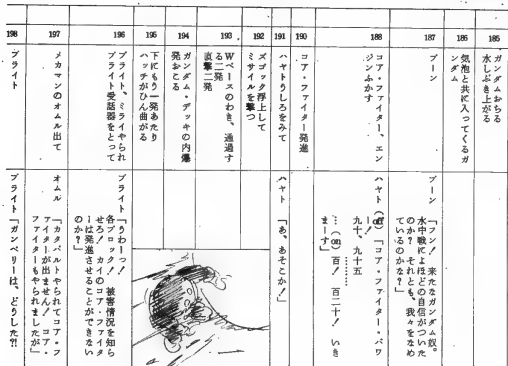 185
ガンダムおちる
水しぶき上がる
186
気泡と共に入ってくるガ
ンダム
187
ブーン
ブーン「フン！ 来たなガンダム奴。
水中戦によほどの自信がついた
のか？ それとも、我々をなめ
ているのかな？」
188
コア・ファイター、エン
ジンふかす
ハヤト(off)「コア・ファイター・パワ
ー！
九十、九十五
………
…(off)百！ 百二十！ いき
まーす」
190
コア・ファイター発進
191
ハヤトうしろをみて
ハヤト「あ、あそこか！」
192
ズゴック浮上して
ミサイルを撃つ
193
Wベースのわき、通過す
る二発
直撃二発
194
ガンダム・デッキの内爆
発おこる
195
下にもう一発あたり
ハッチがひん曲がる
196
ブライト、ミライやられ
ブライト受話器をとって
ブライト「うわーっ！
各ブロック！ 被害情況を知ら
せろ！ カイのコア・ファイタ
ーは発進させることができない
のか？」
197
メカマンのオムル出て
オムル「カタパルトやられてコア・フ
ァイターが出ません！ コア・
ファイターもやられましたが」
198
ブライト
ブライト「ガンペリーは、どうした？！